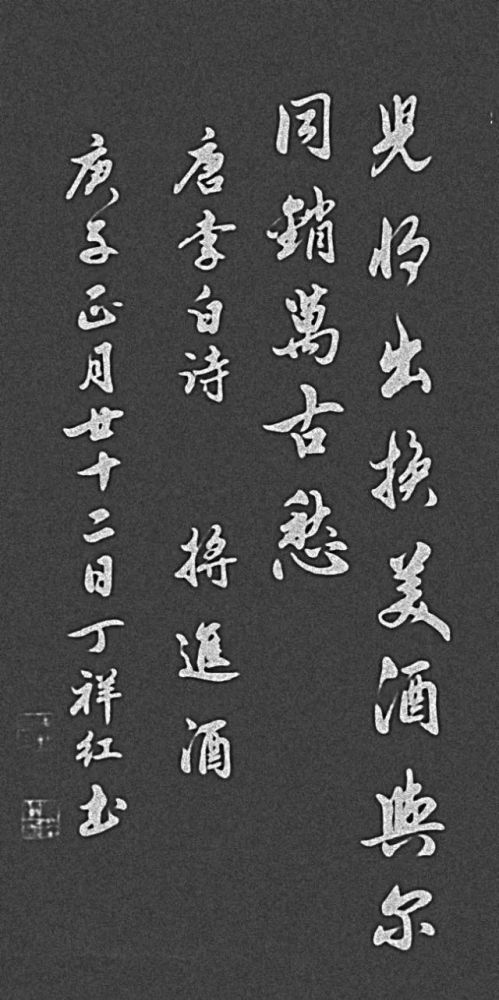 児将出换美酒與尔
同銷萬古愁
唐李白诗 将進酒
庚子正月廿十二日丁祥红书